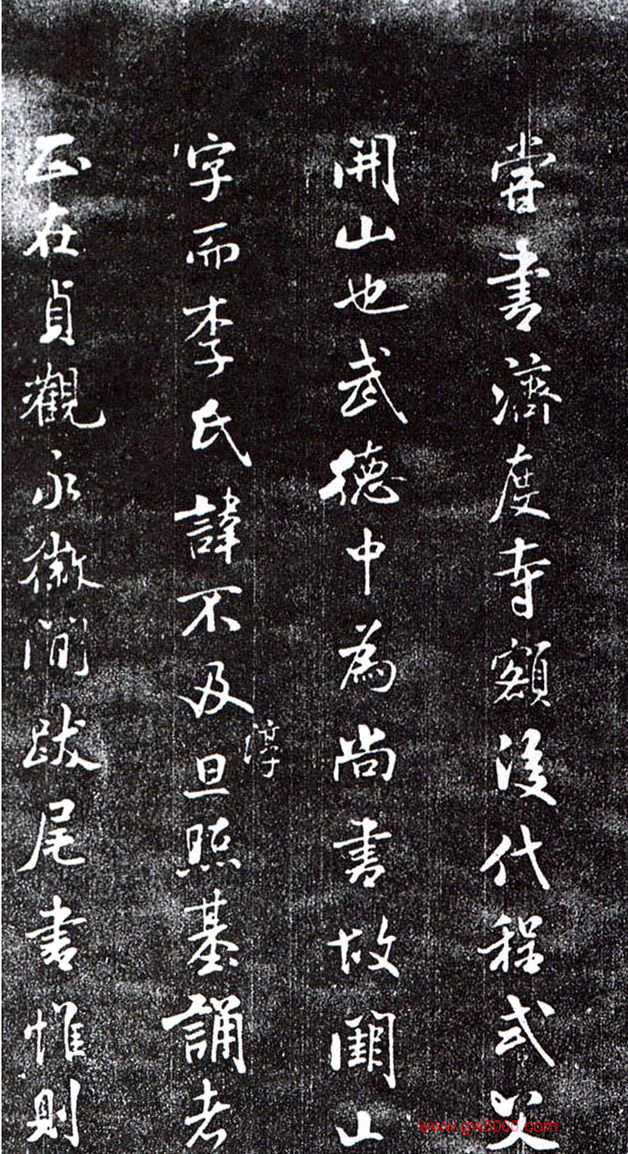 嘗書濟度寺額後代程式父
開山也武德中為尚書故闕山
字而李氏諱不及旦照基誦者
淳
正在貞觀永徽間跋尾書惟則
www.gw8000.com